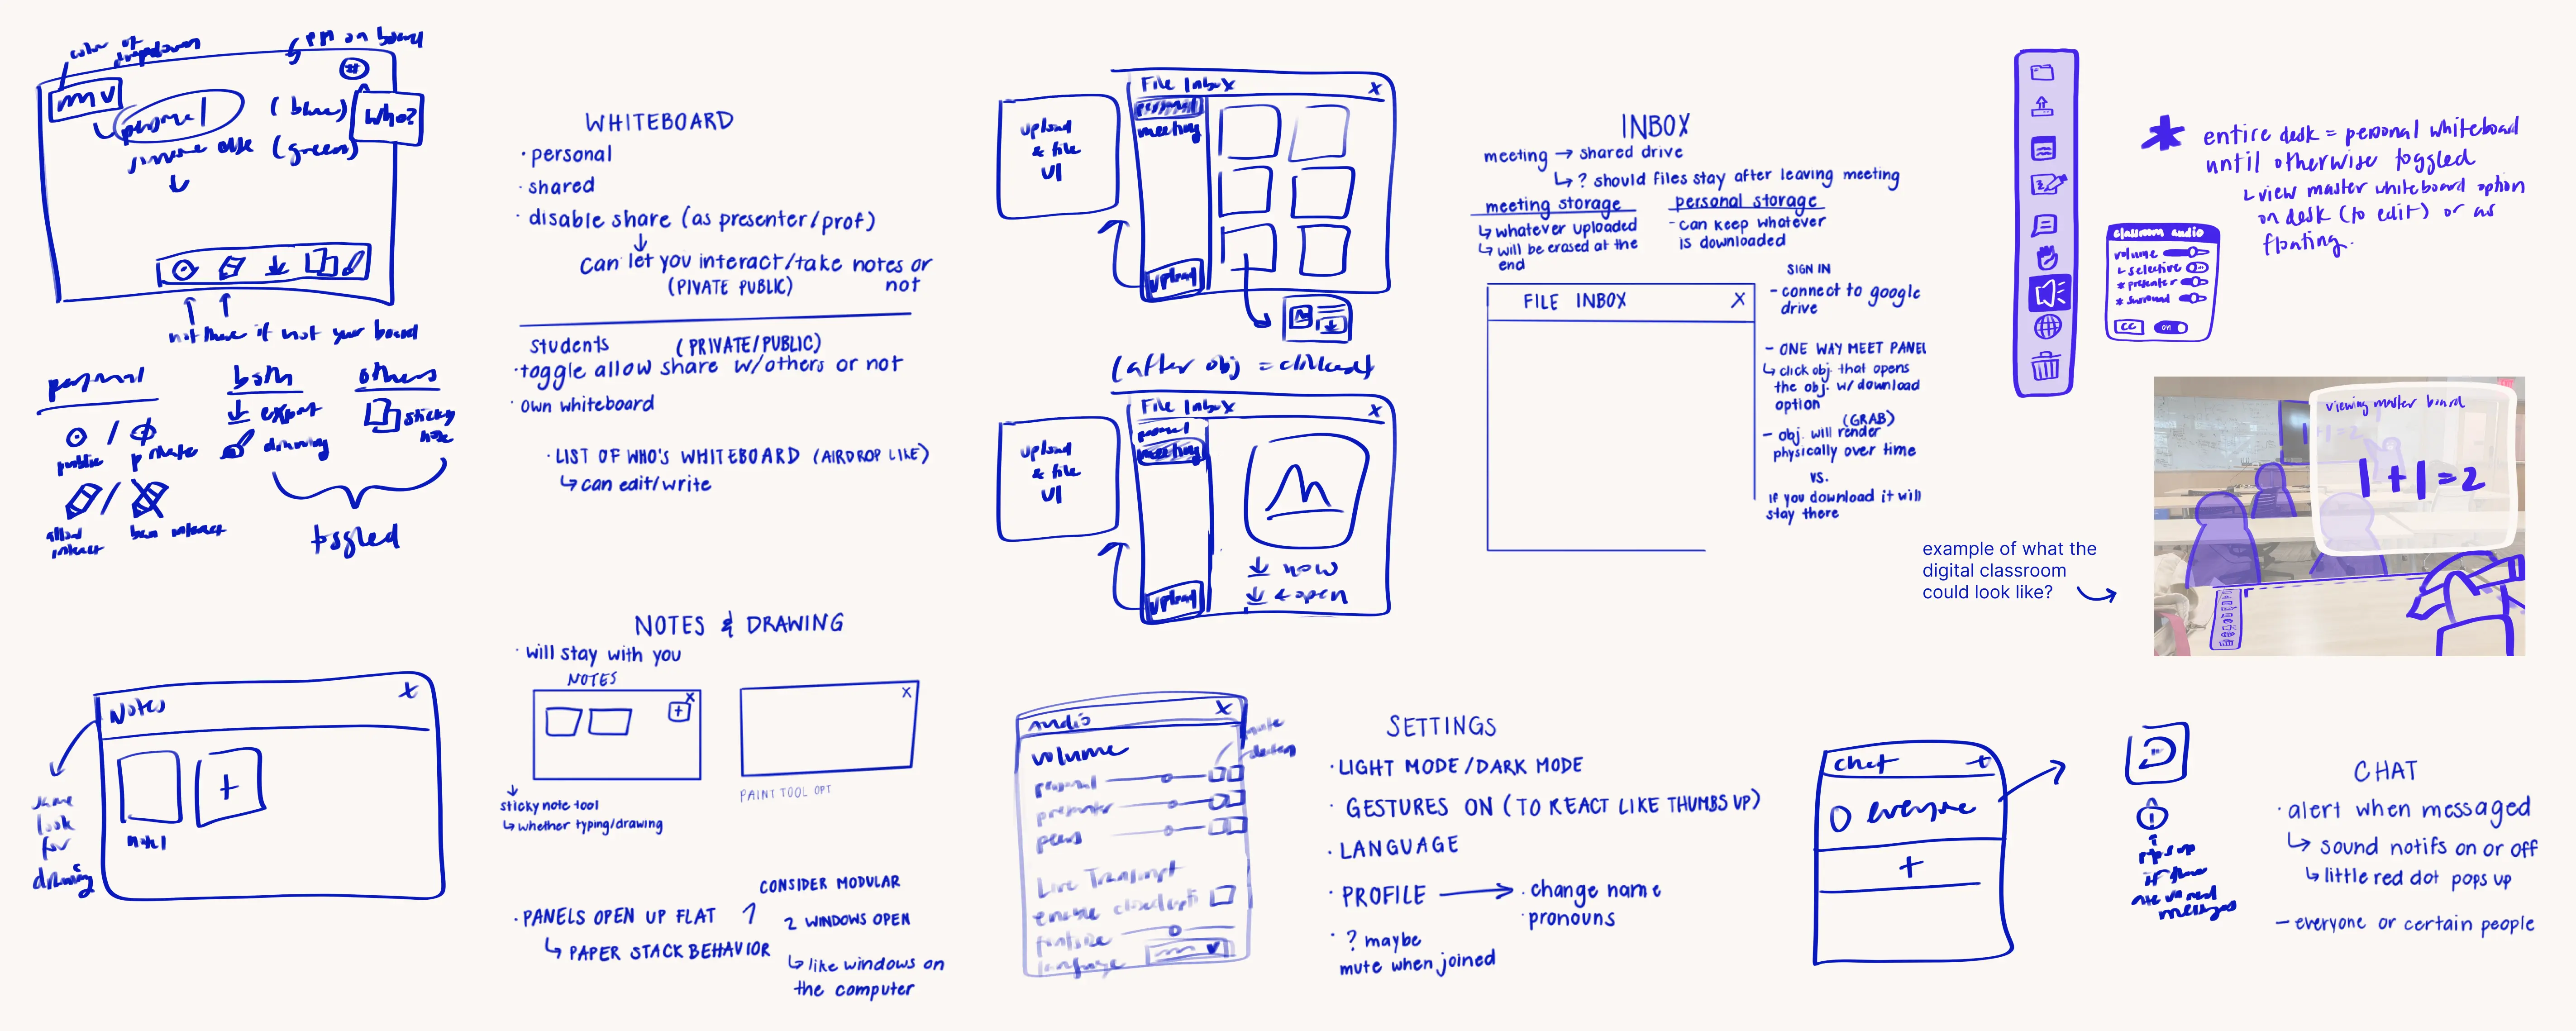 color of dropdown
PM on board
personal
(blue)
Who?
someone else (green)
not there if not your board
personal
both
others
public / private
export
drawing
sticky note
allow interact
ban interact
toggled
WHITEBOARD
· personal
· shared
· disable share (as presenter/prof)
can let you interact/take notes or not
(PIVATE PUBLIC)
students (PRIVATE/PUBLIC)
· toggle allow share w/others or not
· own whiteboard
· LIST OF WHO'S WHITEBOARD (AIRDROP LIKE)
can edit/write
File Inbox X
personal
meeting
upload
& file
UI
upload
(after obj = clicked)
File Inbox X
personal
meeting
upload
& file
UI
upload
now
& open
INBOX
meeting → shared drive
? should files stay after leaving meeting
meeting storage
whatever uploaded
will be erased at the
end
personal storage
- can keep whatever
is downloaded
FILE INBOX X
SIGN IN
- connect to google
drive
- ONE WAY MEET PANEL
click obj. that opens
the obj. w/ download
option
(GRAB)
- obj. will render
physically over time
vs.
if you download it will
stay there
* entire desk = personal whiteboard
until otherwise toggled
view master whiteboard option
on desk (to edit) or as
floating.
classroom audio
volume
selective
* presenter
* surround
CC on
viewing master board
1+1=2
1+1=2
example of what the
digital classroom
could look like?
Notes x
note 1
same
look
for
drawing
NOTES & DRAWING
· will stay with you
NOTES
X
+
X
sticky note tool
whether typing/drawing
PAINT TOOL OPT
· PANELS OPEN UP FLAT
PAPER STACK BEHAVIOR
CONSIDER MODULAR
2 WINDOWS OPEN
like windows on
the computer
Audio X
volume
personal
presenter
peers
mute
deafen
Live Transcript
enable closed capt
font size
language
SETTINGS
· LIGHT MODE/DARK MODE
· GESTURES ON (TO REACT LIKE THUMBS UP)
· LANGUAGE
· PROFILE → · change name
· pronouns
· ? maybe
mute when joined
chat
everyone
+
pops up
if there
are unread
messages
CHAT
· alert when messaged
sound notifs on or off
little red dot pops up
- everyone or certain people